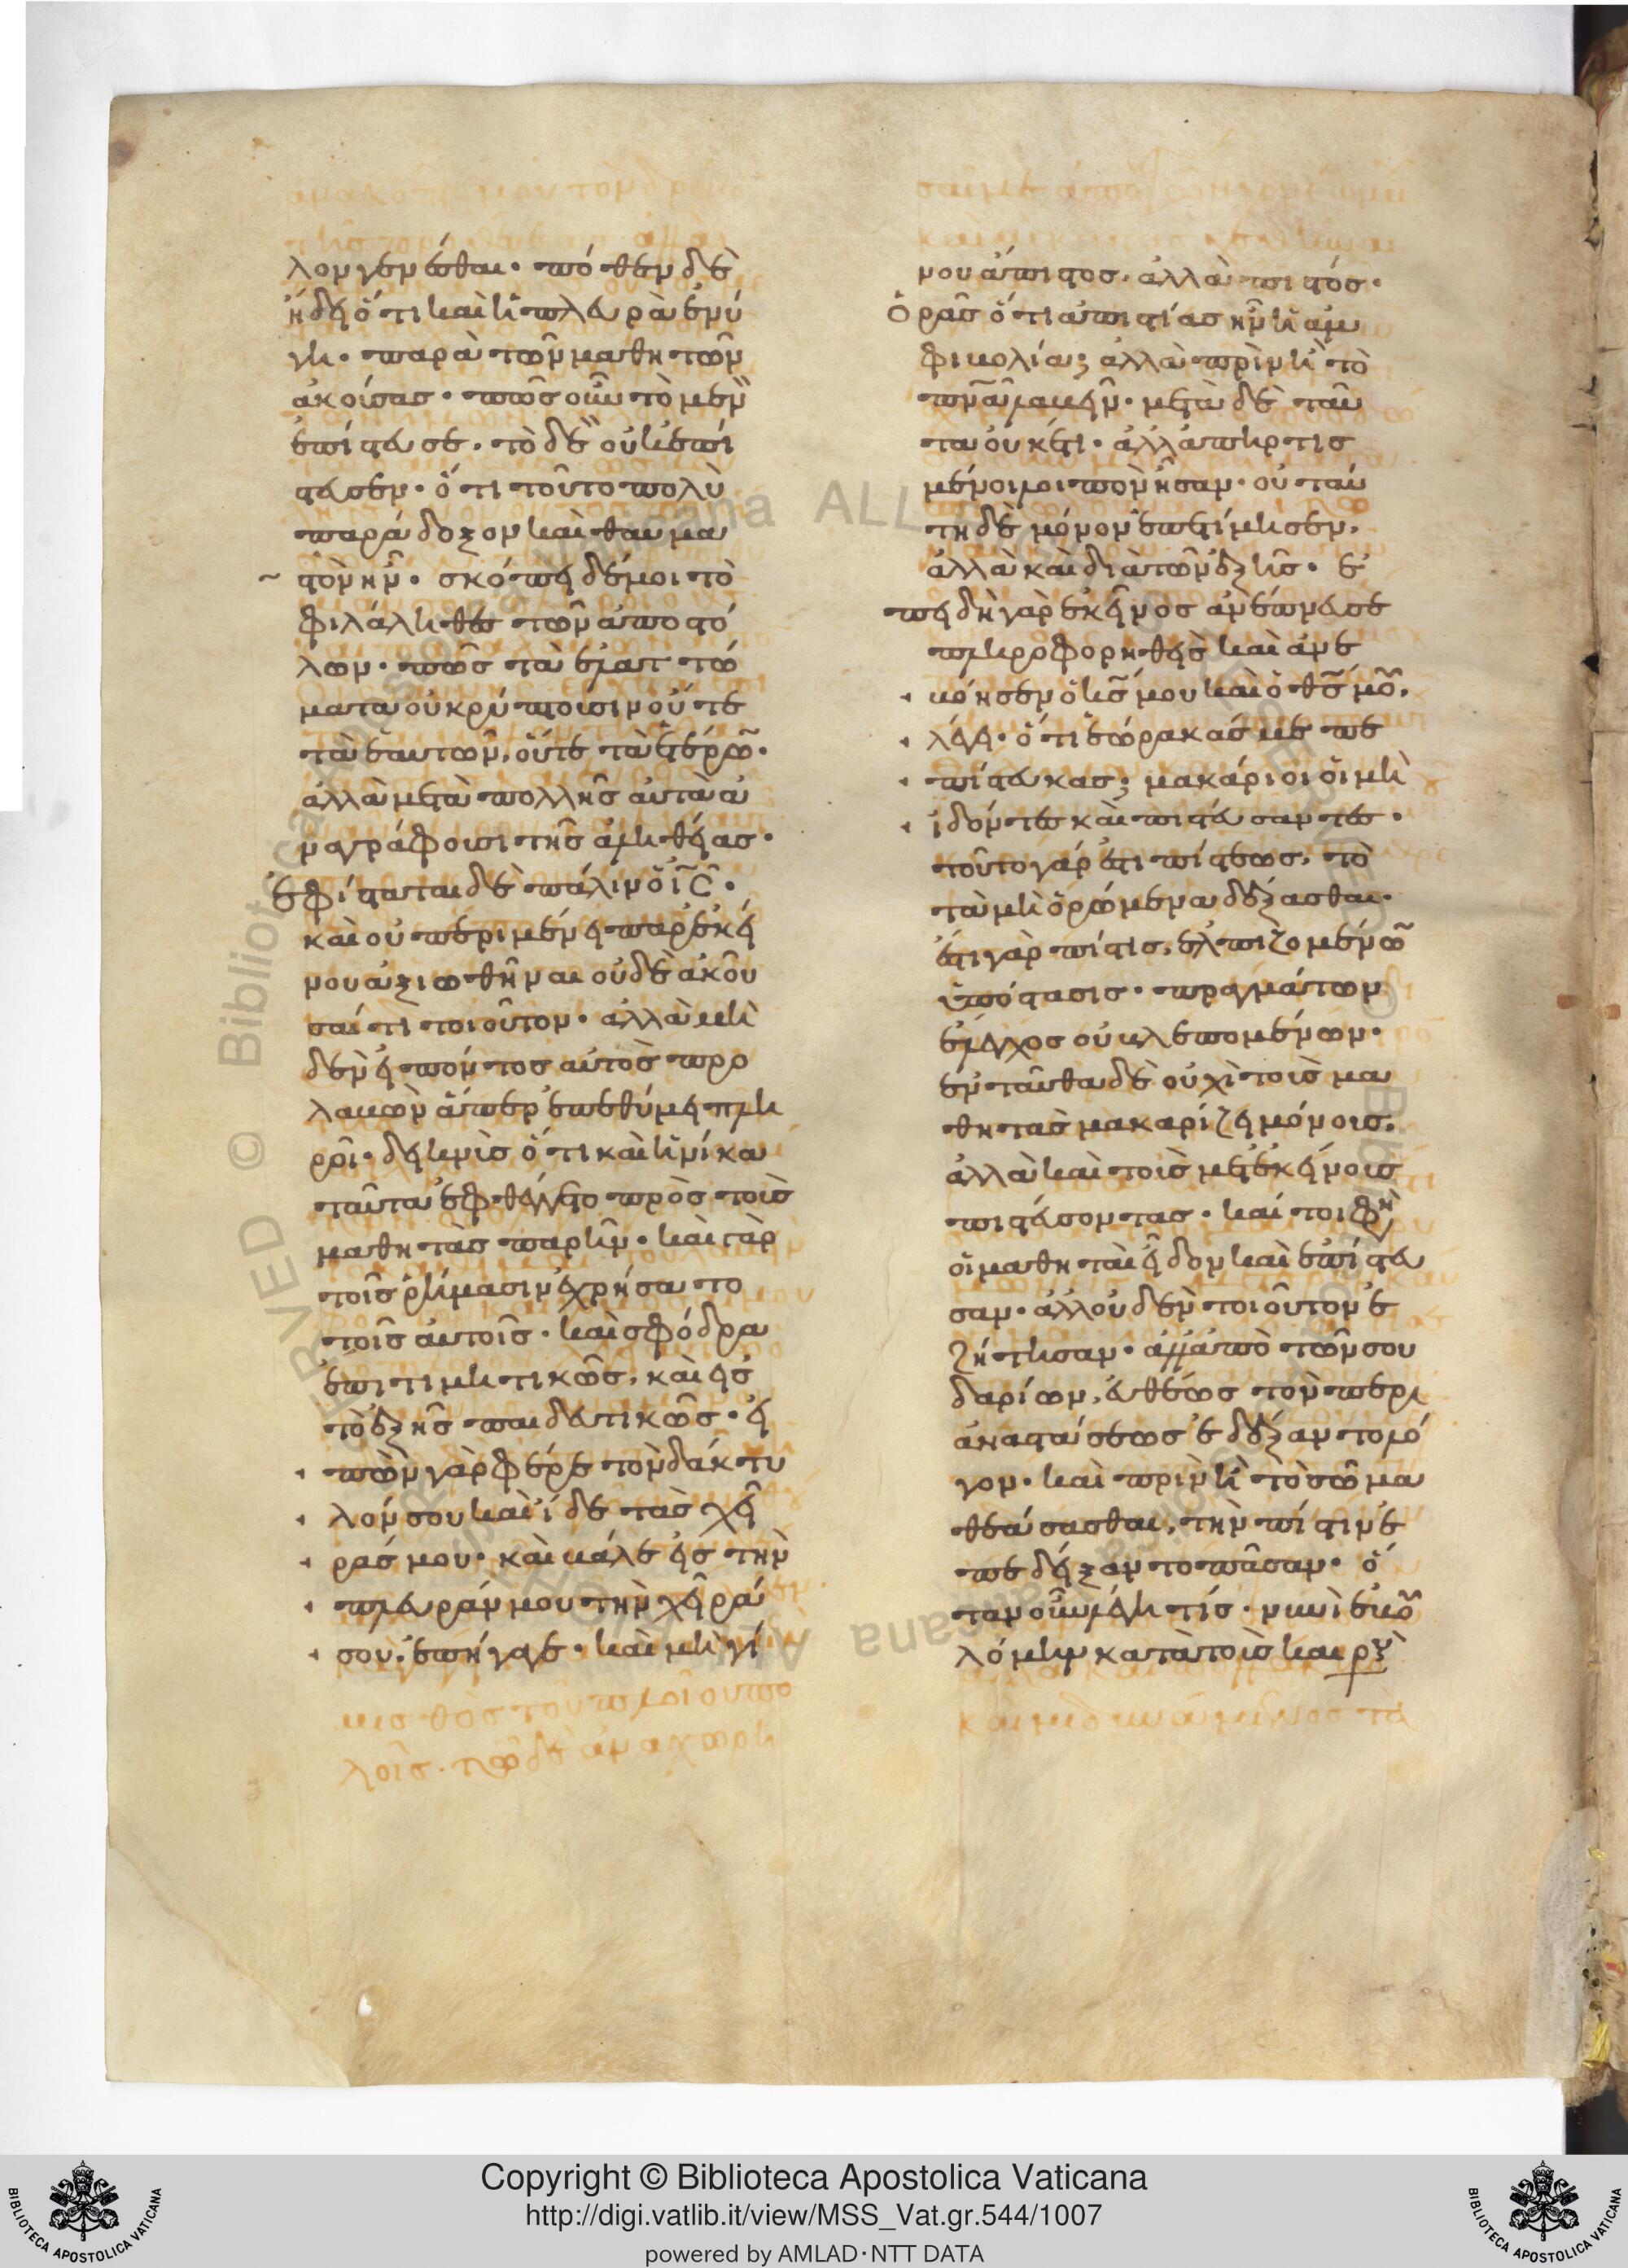 λον γενέσθαι· πόθεν δὲ
ἤδει ὅτι καὶ ἡ πλευρὰ ἐνύ
γη· παρὰ τῶν μαθητῶν
ἀκούσας· πῶς οὖν τὸ μὲν
ἐπίστευσε, τὸ δὲ οὐκ ἐπί
στευσεν· ὅτι τοῦτο πολὺ
παράδοξον καὶ θαυμα
στὸν ἦν· σκόπει δέ μοι τὸ
φιλάληθες τῶν ἀποστό
λων· πῶς τὰ ἐλαττώ
ματα οὐ κρύπτουσιν οὔτε
τὰ ἑαυτῶν, οὔτε τὰ ἑτέρω̃·
ἀλλὰ μετὰ πολλῆς αὐτὰ ἀ
ναγράφουσι τῆς ἀληθείας·
ἐφίσταται δὲ πάλιν ὁ ις̃·
καὶ οὐ περιμένει παρ' ἐκεί
νου ἀξιωθῆναι οὐδὲ ἀκοῦ
σαί τι τοιοῦτον· ἀλλὰ μη
δὲν εἰπόντος αὐτὸς προ
λαβὼν ἅπερ ἐπεθύμει πλη
ροῖ· δεικνὺς ὅτι καὶ ἡνίκα
ταῦτα ἐφθέγγετο πρὸς τοὺς
μαθητὰς παρῆν· καὶ γὰρ
τοῖς ῥήμασιν ἐχρήσατο
τοῖς αὐτοῖς· καὶ σφόδρα
ἐπιτιμητικῶς, καὶ εἰς
τὸ ἑξῆς παιδευτικῶς· εἰ
πὼν γὰρ φέρε τὸν δάκτυ
λόν σου καὶ ἴδε τὰς χεῖ
ράς μου· καὶ βάλε εἰς τὴν
πλευράν μου τὴν χεῖρά
σου, ἐπήγαγε· καὶ μὴ γί
νου ἄπιστος, ἀλλὰ πιστός·
Ὁρᾷς ὅτι ἀπιστίας ἦν ἡ ἀμ
φιβολία; ἀλλὰ πρὶν ἢ τὸ
πνᾶ λαβεῖν· μετὰ δὲ ταῦ
τα οὐκέτι· ἀλλὰ πηρτισ
μένοι λοιπὸν ἦσαν· οὐ ταύ
τη δὲ μόνον ἐπετίμησεν,
ἀλλὰ καὶ διὰ τῶν ἑξῆς· ἐ
πειδὴ γὰρ ἐκεῖνος ἀνέπνευσε
πληροφορηθεὶς καὶ ἀνε
βόησεν ὁ κς̃ μου καὶ ὁ θς̃ μο̃,
λέγει· ὅτι ἑώρακάς με πε
πίστευκας; μακάριοι οἱ μὴ
ἰδόντες καὶ πιστεύσαντες·
τοῦτο γάρ ἐστι πίστεως, τὸ
τὰ μὴ ὁρώμενα δέξασθαι·
ἔστι γὰρ πίστις, ἐλπιζομένω̃
ὑπόστασις· πραγμάτων
ἔλεγχος οὐ βλεπομένων·
ἐνταῦθα δὲ οὐχὶ τοὺς μα
θητὰς μακαρίζει μόνους,
ἀλλὰ καὶ τοὺς μετ' ἐκείνους
πιστεύσοντας· καί τοι φη
οἱ μαθηταὶ εἶδον καὶ ἐπίστευ
σαν· ἀλλ' οὐδὲν τοιοῦτον ἐ
ζήτησαν· ἀλλ' ἀπὸ τῶν σου
δαρίων, εὐθέως τὸν περὶ
ἀναστάσεως ἐδέξαντο λό
γον· καὶ πρὶν ἢ τὸ σῶμα
θεάσασθαι, τὴν πίστιν ἐ
πεδείξαντο πᾶσαν· ὅ
ταν οὖν λέγη τίς· νῦν ἐβου
λόμην κατὰ τοὺς καιροὺς
Copyright © Biblioteca Apostolica Vaticana
http://digi.vatlib.it/view/MSS_Vat.gr.544/1007
powered by AMLAD·NTT DATA
BIBLIOTECA APOSTOLICA VATICANA
BIBLIOTECA APOSTOLICA VATICANA